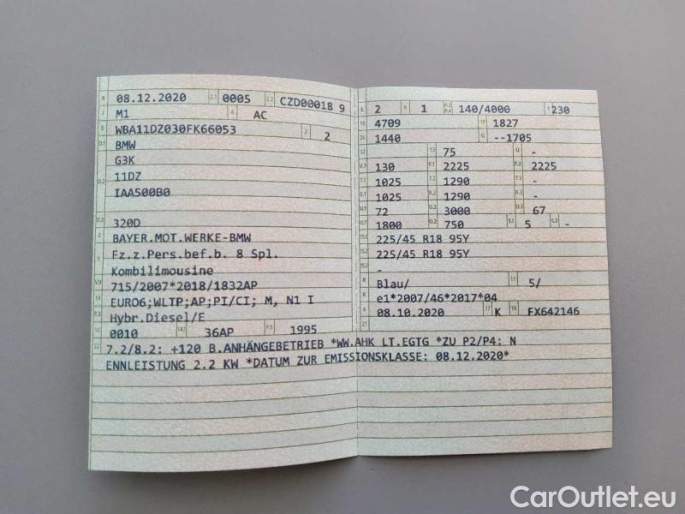 08.12.2020 0005 CZD00018 9
M1 AC
WBA11DZ030FK66053 2
BMW
G3K
11DZ
IAA500B0
320D
BAYER.MOT.WERKE-BMW
Fz.z.Pers.bef.b. 8 Spl.
Kombilimousine
715/2007*2018/1832AP
EURO6;WLTP;AP;PI/CI; M, N1 I
Hybr.Diesel/E
0010 36AP 1995
7.2/8.2: +120 B.ANHÄNGEBETRIEB *WW.AHK LT.EGTG *ZU P2/P4: N
ENNLEISTUNG 2.2 KW *DATUM ZUR EMISSIONSKLASSE: 08.12.2020*
2 1 140/4000 230
4709 1827
1440 --1705
75 -
130 2225 2225
1025 1290 -
1025 1290 -
72 3000 67
1800 750 5 -
225/45 R18 95Y
225/45 R18 95Y
-
Blau/ 5/
e1*2007/46*2017*04
08.10.2020 K FX642146
CarOutlet.eu